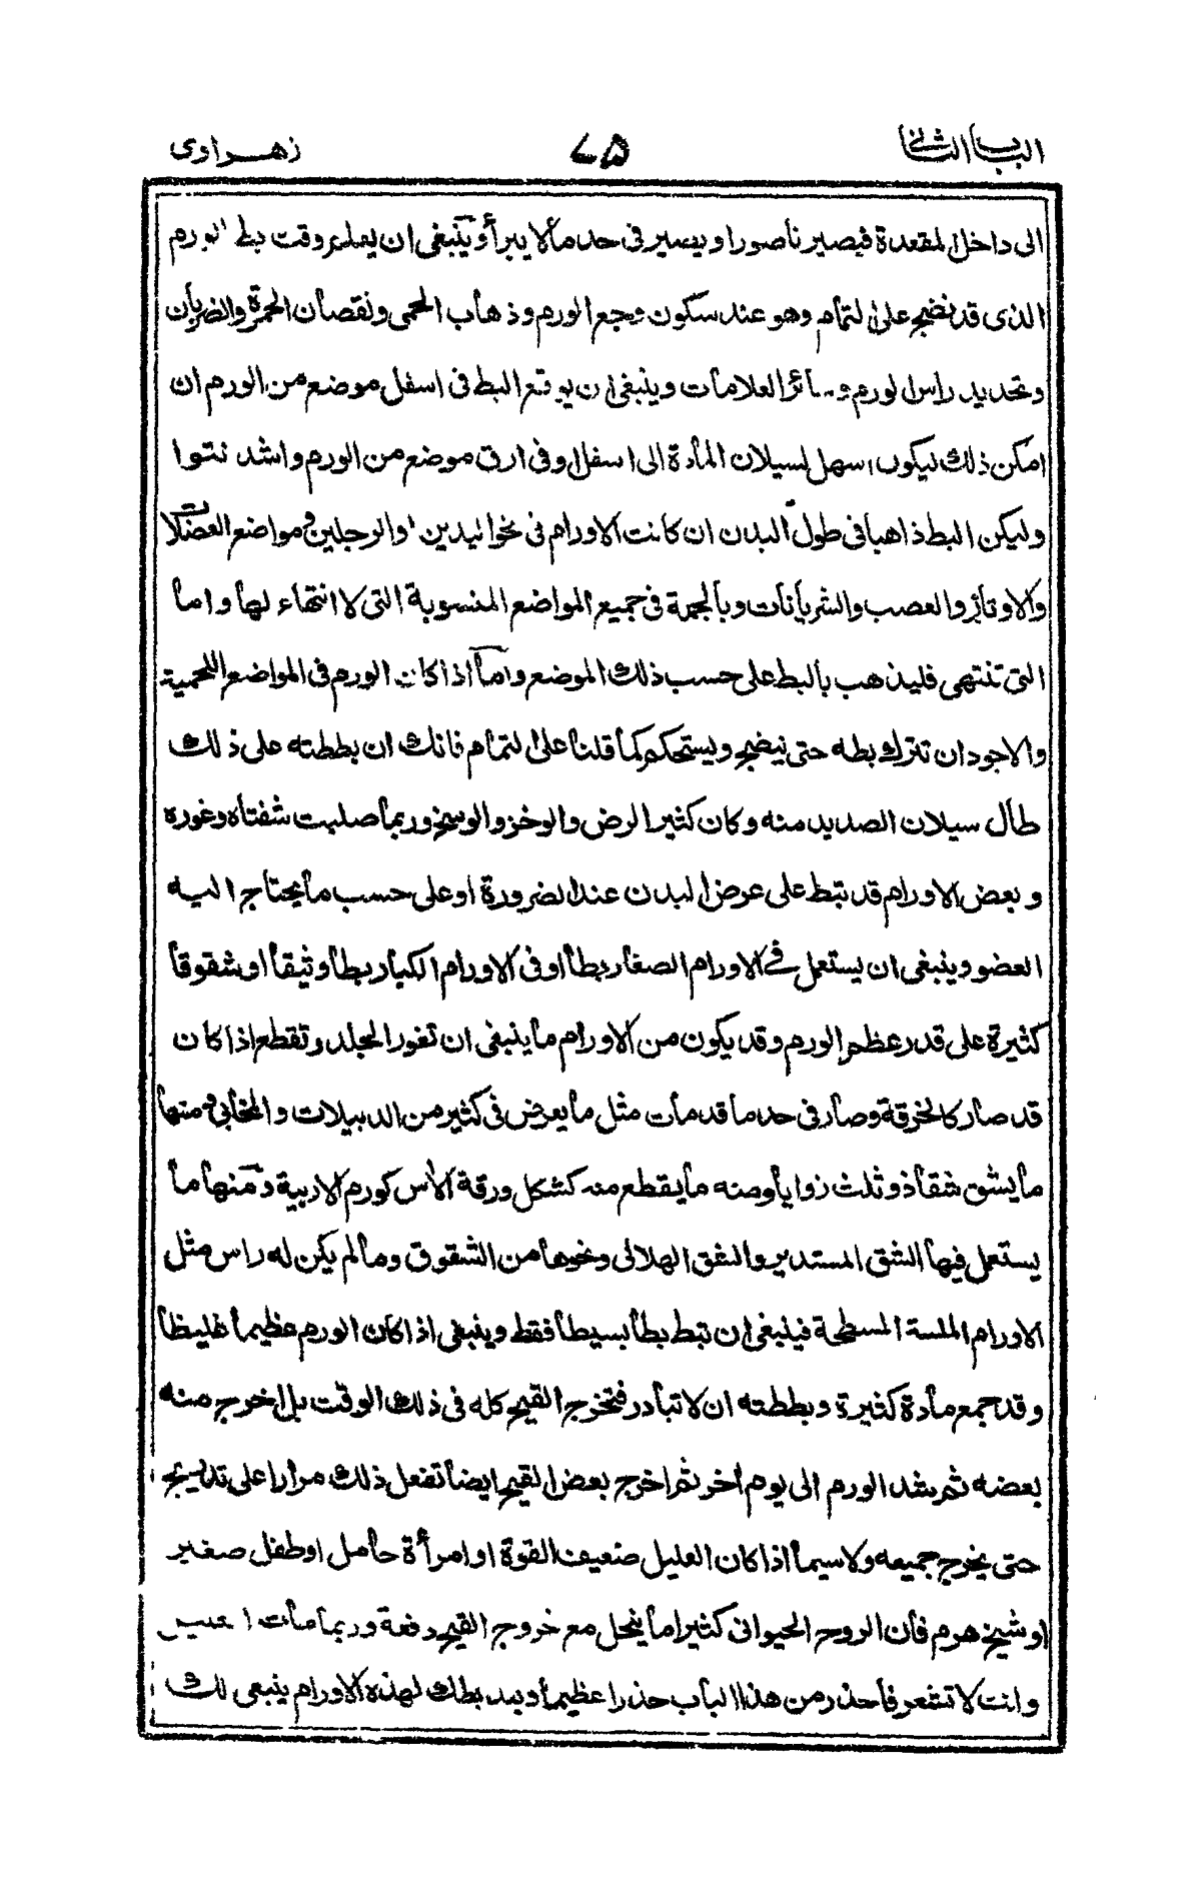 الباب الثانی ۷۵ زهراوی
الی داخل المقعدة فیصیر ناصورا ویصیر فی حد ما لا یبرأ وینبغی ان یعلم وقت بط الورم
الذی قد نضج علی التمام وهو عند سکون وجع الورم وذهاب الحمی ونقصان الحمرة والضربان
وتحدید راس الورم وسائر العلامات وینبغی ان یوقع البط فی اسفل موضع من الورم ان
امکن ذلك لیکون اسهل لسیلان المادة الی اسفل او فی ارق موضع من الورم واشد نتوا
ولیکن البط ذاهبا فی طول البدن ان کانت الاورام فی نحو الیدین او الرجلین و مواضع العضلات
والاوتار والعصب والشریانات وبالجمة فی جمیع المواضع المنسوبة التی لا انتهاء لها واما
التی تنتهی فلیذهب بالبط علی حسب ذلك الموضع واما اذا کان الورم فی المواضع اللحمیة
والاجود ان تترك بطه حتی ینضج ویستحکم کما قلنا علی التمام فانك ان بططته علی ذلك
طال سیلان الصدید منه وکان کثیر الرض والوخز والوسخ وربما صلبت شفتاه وغوره
وبعض الاورام قد تبط علی عرض البدن عند الضرورة او علی حسب ما یحتاج الیه
العضو وینبغی ان یستعمل فی الاورام الصغار بطا او فی الاورام الکبار بطا وثیقا او شقوقا
کثیرة علی قدر عظم الورم وقد یکون من الاورام ما ینبغی ان تغور الجلد وتقطع اذا کان
قد صار کالخرقة وصار فی حد ما قد مات مثل ما یعرض فی کثیر من الدبیلات والمخابی و منها
ما یشق شقا ذو ثلث زوایا ومنه ما یقطع منه کشکل ورقة الآس کورم الاربیة ومنها ما
یستعمل فیها الشق المستدیر والشق الهلالی ونحوها من الشقوق وما لم یکن له راس مثل
الاورام الملسة المسطحة فینبغی ان تبط بطا بسیطا فقط وینبغی اذا کان الورم عظیما غلیظا
وقد جمع مادة کثیرة وبططته ان لا تبادر فتخرج القیح کله فی ذلك الوقت بل اخرج منه
بعضه ثم شد الورم الی یوم آخر ثم اخرج بعض القیح ایضا تفعل ذلك مرارا علی تدریج
حتی یخرج جمیعه ولا سیما اذا کان العلیل ضعیف القوة او امرأة حامل او طفل صغیر
او شیخ هرم فان الروح الحیوانی کثیرا ما ینحل مع خروج القیح دفعة وربما مات العلیل
وانت لا تشعر فاحذر من هذا الباب حذرا عظیما وبعد بطك لهذه الاورام ینبغی لك